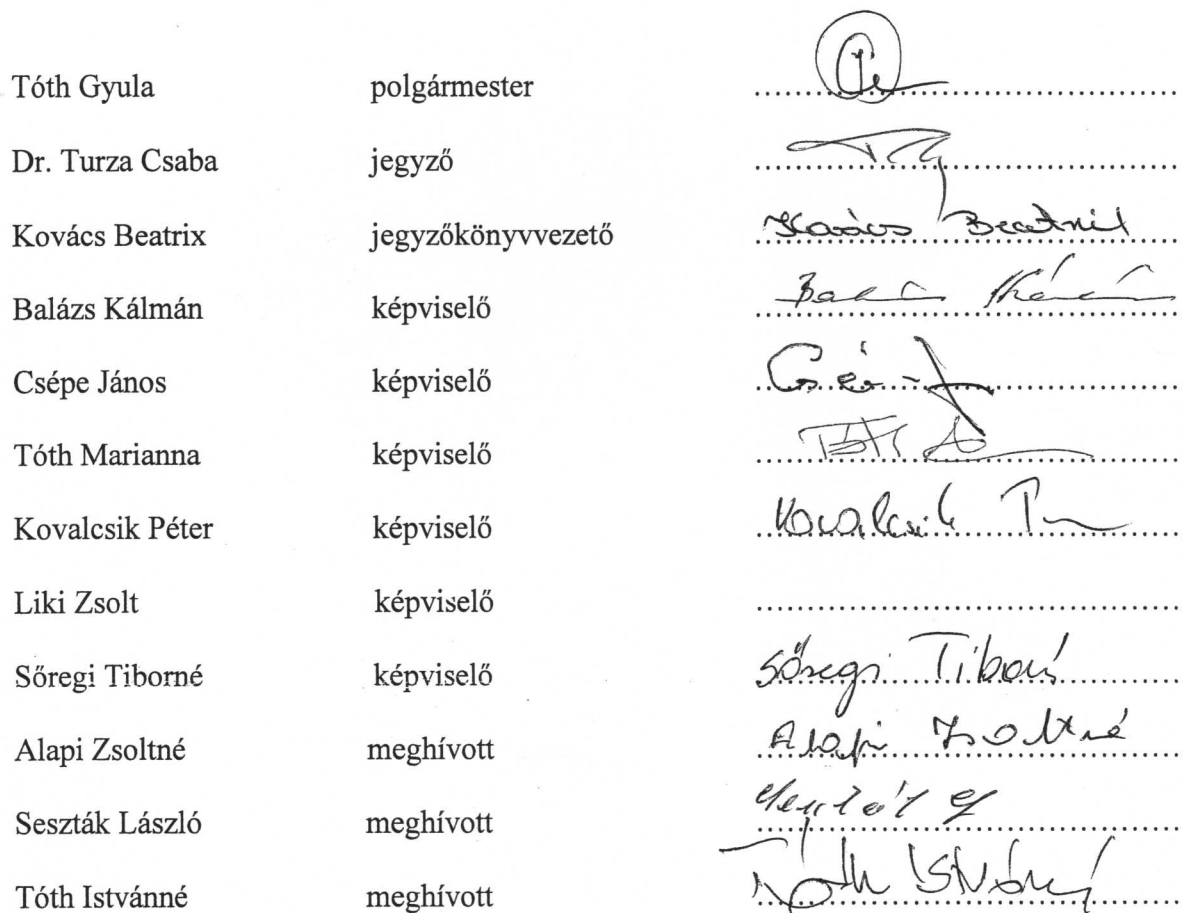 Tóth Gyula polgármester ..........
Dr. Turza Csaba jegyző ..........
Kovács Beatrix jegyzőkönyvvezető Kovács Beatrix
Balázs Kálmán képviselő ..........
Csépe János képviselő ..........
Tóth Marianna képviselő ..........
Kovalcsik Péter képviselő Kovalcsik
Liki Zsolt képviselő ..........
Sőregi Tiborné képviselő Sőregi Tiborné
Alapi Zsoltné meghívott Alapi Zsoltné
Seszták László meghívott ..........
Tóth Istvánné meghívott Tóth Istvánné